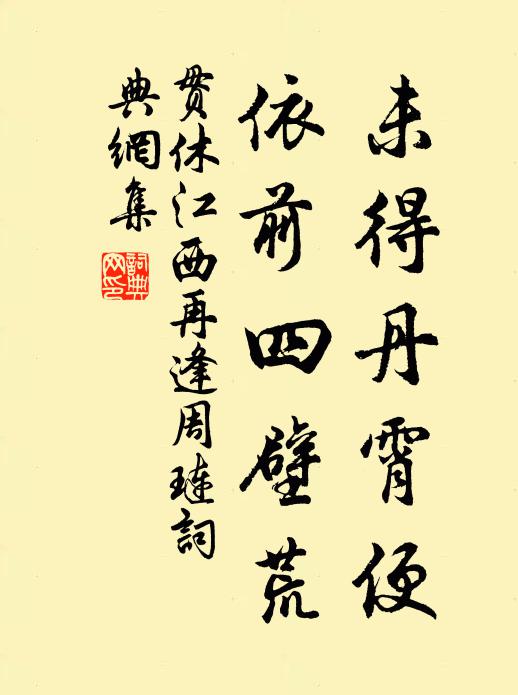 未得丹霄便
依前四壁荒
貫休江西再逢周璉詞
典網集
詞典
网印